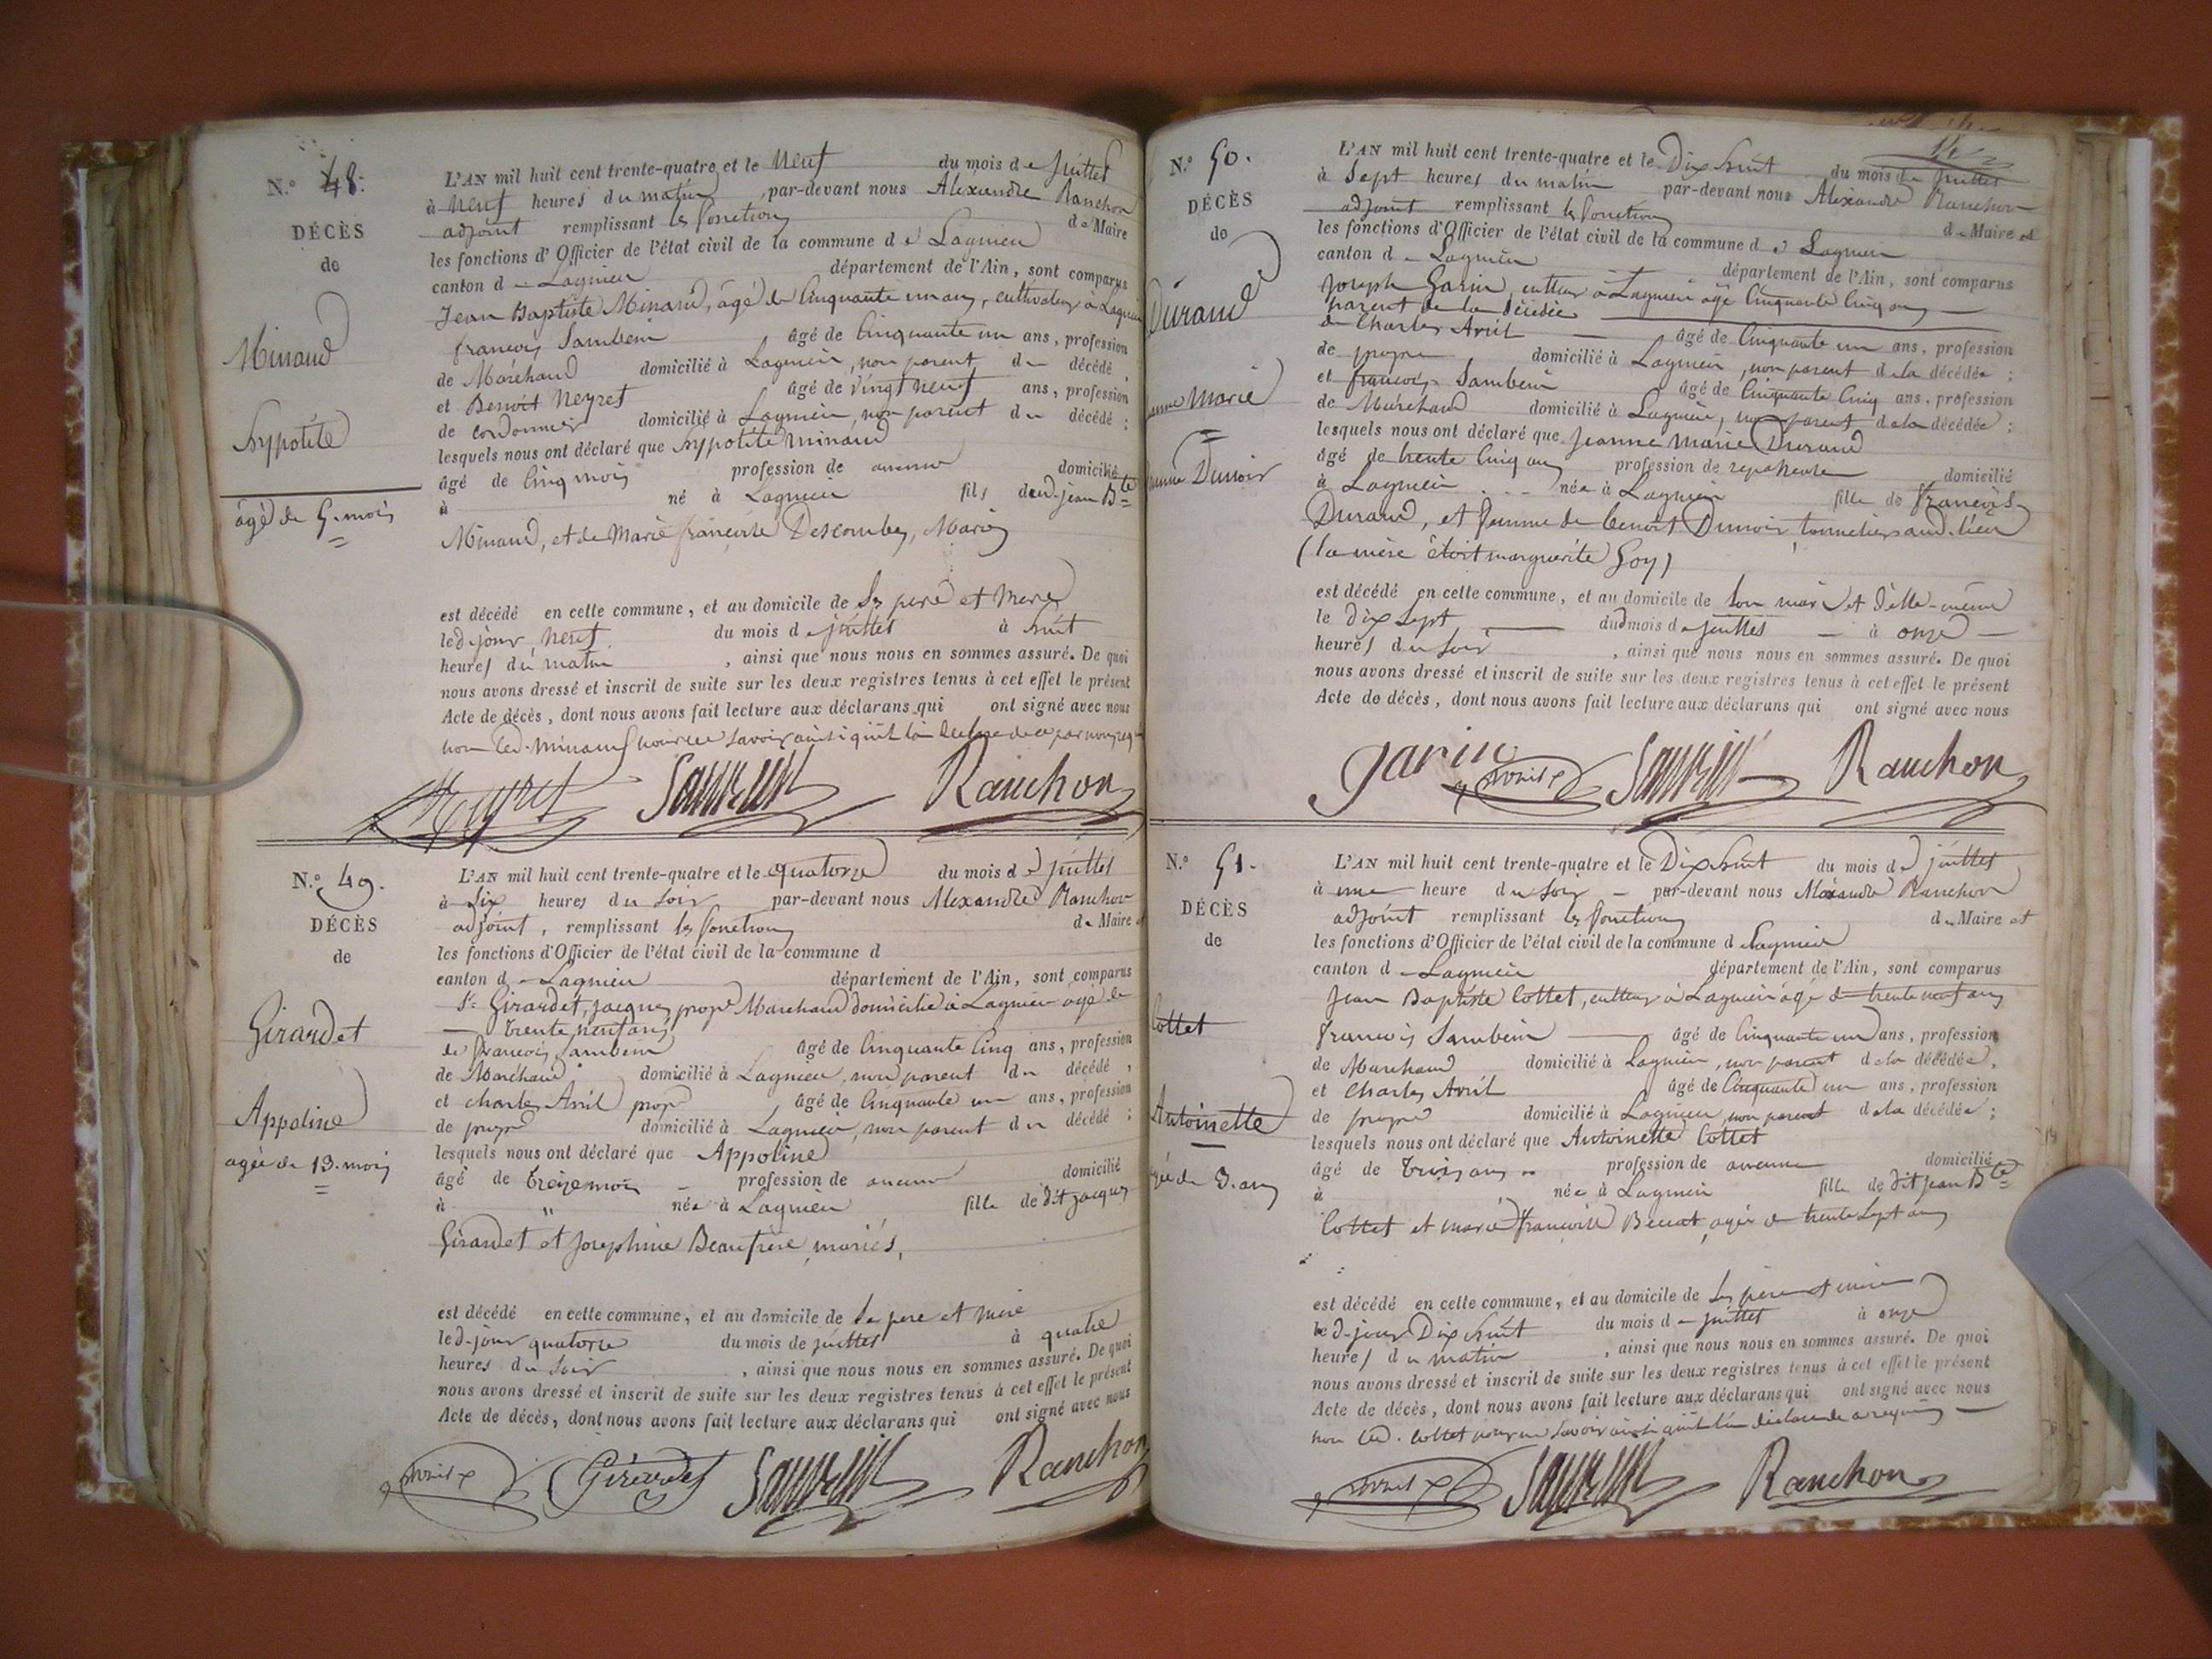 N.o 48.
DÉCÈS
de
Minand
hypolite
âgé de 5. mois
L'AN mil huit cent trente-quatre et le neuf du mois de juillet
à neuf heures du matin par-devant nous Alexandre Ranchon
adjoint remplissant les fonctions de Maire
les fonctions d'Officier de l'état civil de la commune de Lagnieu
canton de Lagnieu département de l'Ain, sont comparus
Jean Baptiste Minand, âgé de Cinquante un ans, cultivateur à Lagnieu
françois Sambein âgé de Cinquante un ans, profession
de Marchand domicilié à Lagnieu, non parent du décédé
et Benoit Neyret âgé de vingt neuf ans, profession
de cordonnier domicilié à Lagnieu, non parent du décédé ;
lesquels nous ont déclaré que hypolite minand
âgé de Cinq mois profession de aucune domicilié
à né à Lagnieu fils dud. jean Bte
Minand, et de Marie françoise Descombes, Mariés
est décédé en cette commune, et au domicile de Ses pere et mere
led. jour neuf du mois de juillet à huit
heures du matin , ainsi que nous nous en sommes assuré. De quoi
nous avons dressé et inscrit de suite sur les deux registres tenus à cet effet le présent
Acte de décès, dont nous avons fait lecture aux déclarans qui ont signé avec nous
non led. minand pour ne savoir ainsi qu'il l'a déclaré de ce par nous requis
Neyret Sambein Ranchon
N.o 49.
DÉCÈS
de
Girardet
Appoline
agée de 13. mois
L'AN mil huit cent trente-quatre et le quatorze du mois de juillet
à Six heures du Soir par-devant nous Alexandre Ranchon
adjoint, remplissant les fonctions de Maire et
les fonctions d'Officier de l'état civil de la commune d
canton de Lagnieu département de l'Ain, sont comparus
Sr. Girardet, jacques, propre Marchand domicilié à Lagnieu agé de
trente neuf ans
de françois Sambein âgé de Cinquante Cinq ans, profession
de Marchand domicilié à Lagnieu, non parent du décédé,
et charles Avril propre âgé de Cinquante un ans, profession
de propre domicilié à Lagnieu, non parent du décédé ;
lesquels nous ont déclaré que Appoline
âgé de treize mois profession de aucune domicilié
à " née à Lagnieu fille de dit jacques
Girardet et josephine Beaufrère, mariés,
est décédé en cette commune, et au domicile de Ses pere et mere
led. jour quatorze du mois de juillet à quatre
heures du Soir , ainsi que nous nous en sommes assuré. De quoi
nous avons dressé et inscrit de suite sur les deux registres tenus à cet effet le présent
Acte de décès, dont nous avons fait lecture aux déclarans qui ont signé avec nous
avril Girardet Sambein Ranchon
N.o 50.
DÉCÈS
de
Durand
Jeanne Marie
femme Dunoir
L'AN mil huit cent trente-quatre et le Dix huit du mois de juillet
à Sept heures du matin par-devant nous Alexandre Ranchon
adjoint remplissant les fonctions de Maire et
les fonctions d'Officier de l'état civil de la commune de Lagnieu
canton de Lagnieu département de l'Ain, sont comparus
Joseph Garin, cultteur à Lagnieu âgé Cinquante Cinq ans
parent de la décédée
de Charles Avril âgé de Cinquante un ans, profession
de propre domicilié à Lagnieu, non parent de la décédée ;
et françois Sambein âgé de Cinquante Cinq ans, profession
de Marchand domicilié à Lagnieu, non parent de la décédée ;
lesquels nous ont déclaré que Jeanne Marie Durand
âgé de trente Cinq ans profession de domicilié
à Lagnieu née à Lagnieu fille de françois
Durand, et femme de benoit Dunoir tonnelier aud. lieu
(la mère étoit marguerite Goy)
est décédé en cette commune, et au domicile de Son mari et d'elle-même
le dix Sept dud mois de juillet à onze
heures du soir , ainsi que nous nous en sommes assuré. De quoi
nous avons dressé et inscrit de suite sur les deux registres tenus à cet effet le présent
Acte de décès, dont nous avons fait lecture aux déclarans qui ont signé avec nous
garin avril Sambein Ranchon
N.o 51.
DÉCÈS
de
Cottet
Antoinette
agée de 3. ans
L'AN mil huit cent trente-quatre et le Dix huit du mois de juillet
à une heure du Soir par-devant nous Alexandre Ranchon
adjoint remplissant les fonctions de Maire et
les fonctions d'Officier de l'état civil de la commune de Lagnieu
canton de Lagnieu département de l'Ain, sont comparus
Jean Baptiste Cottet, cultteur à Lagnieu âgé de trente neuf ans
françois Sambein âgé de Cinquante un ans, profession
de Marchand domicilié à Lagnieu, non parent de la décédée,
et Charles Avril âgé de Cinquante un ans, profession
de propre domicilié à Lagnieu, non parent de la décédée ;
lesquels nous ont déclaré que Antoinette Cottet
âgé de trois ans profession de aucune domicilié
à née à Lagnieu fille de dit jean Bte
Cottet et marie françoise agée de trente Sept ans
est décédé en cette commune, et au domicile de Ses père et mère
led. jour Dix huit du mois de juillet à onze
heures du matin , ainsi que nous nous en sommes assuré. De quoi
nous avons dressé et inscrit de suite sur les deux registres tenus à cet effet le présent
Acte de décès, dont nous avons fait lecture aux déclarans qui ont signé avec nous
non led. Cottet pour ne savoir ainsi qu'il l'a déclaré de ce requis
avril Sambein Ranchon